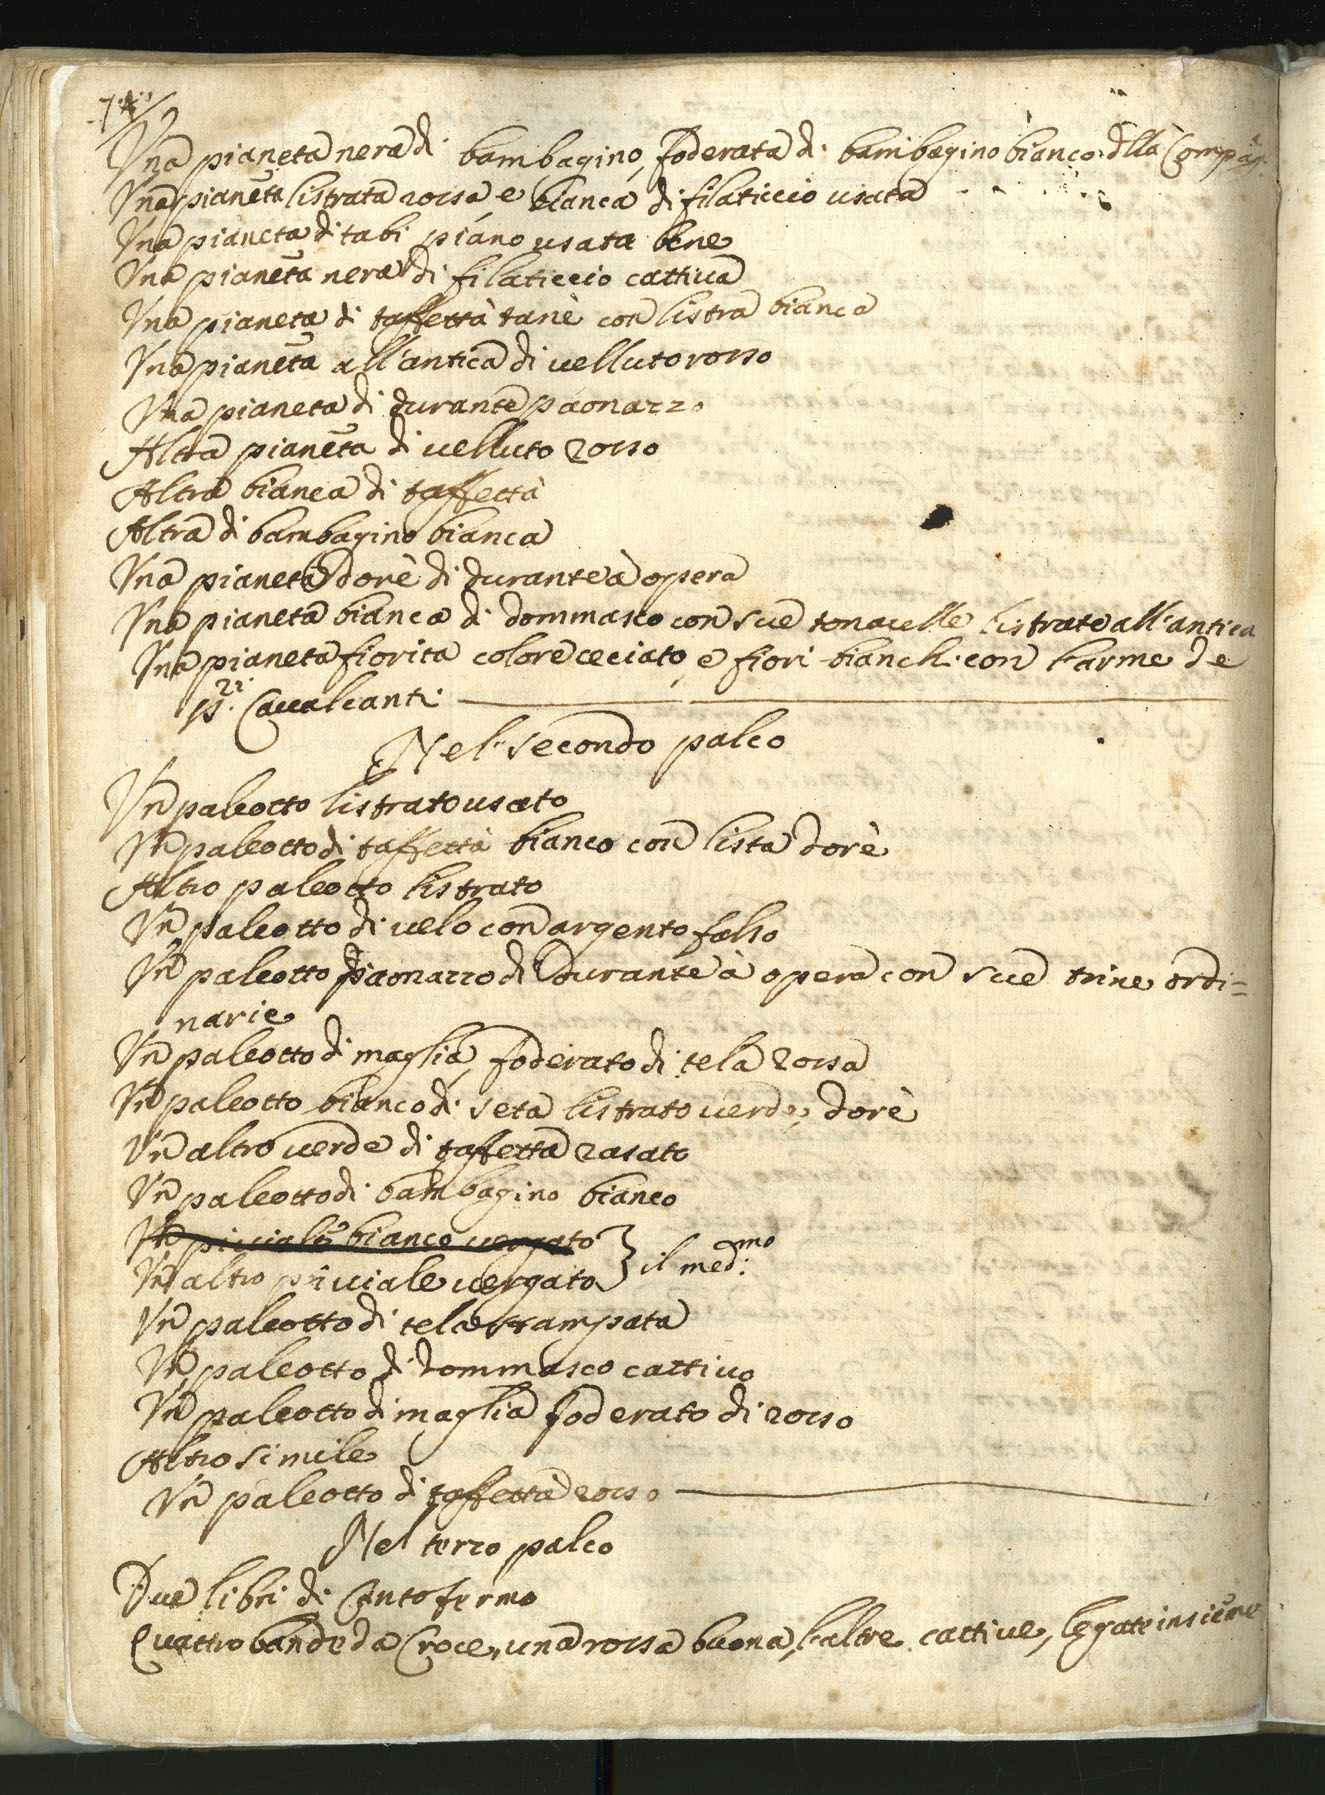 74
Una pianeta nera di bambagino, foderata di bambagino bianco dlla Comp.
Una pianeta listrata rossa e bianca di filaticcio usata
Una pianeta di tabi piano usata bene
Una pianeta nera di filaticcio cattiva
Una pianeta di taffettà tanè con listra bianca
Una pianeta all'antica di velluto rosso
Una pianeta di durante paonazzo
Altra pianeta di velluto rosso
Altra bianca di taffettà
Altra di bambagino bianca
Una pianeta dorè di durante à opera
Una pianeta bianca di dommasco con sue tonacelle listrate all'antica
Una pianeta fiorita colore ceciato, e fiori bianchi con l'arme de
SS.ri Cavalcanti
Nel secondo palco
Un paleotto listrato usato
Un paleotto di taffettà bianco con lista dorè
Altro paleotto listrato
Un paleotto di velo con argento falso
Un paleotto paonazzo di durante à opera con sue trine ordi=
narie
Un paleotto di maglia, foderato di tela rossa
Un paleotto bianco di seta listrato verde, dorè
Un altro verde di taffettà rasato
Un paleotto di bambagino bianco
Un piviale bianco vergato
Un altro piviale vergato } il med.mo
Un paleotto di tela stampata
Un paleotto di dommasco cattivo
Un paleotto di maglia foderato di rosso
Altro simile
Un paleotto di taffettà rosso
Nel terzo palco
Due libri di Canto fermo
Quattro bande da Croce, una rossa buona, l'altre cattive, legate insieme